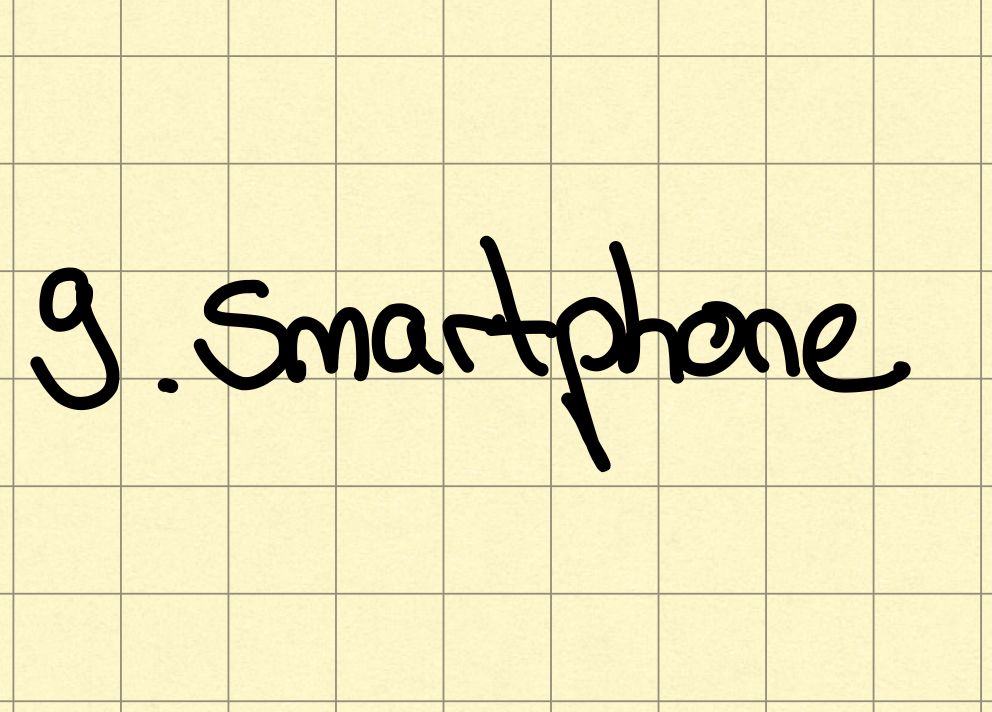 9. Smartphone